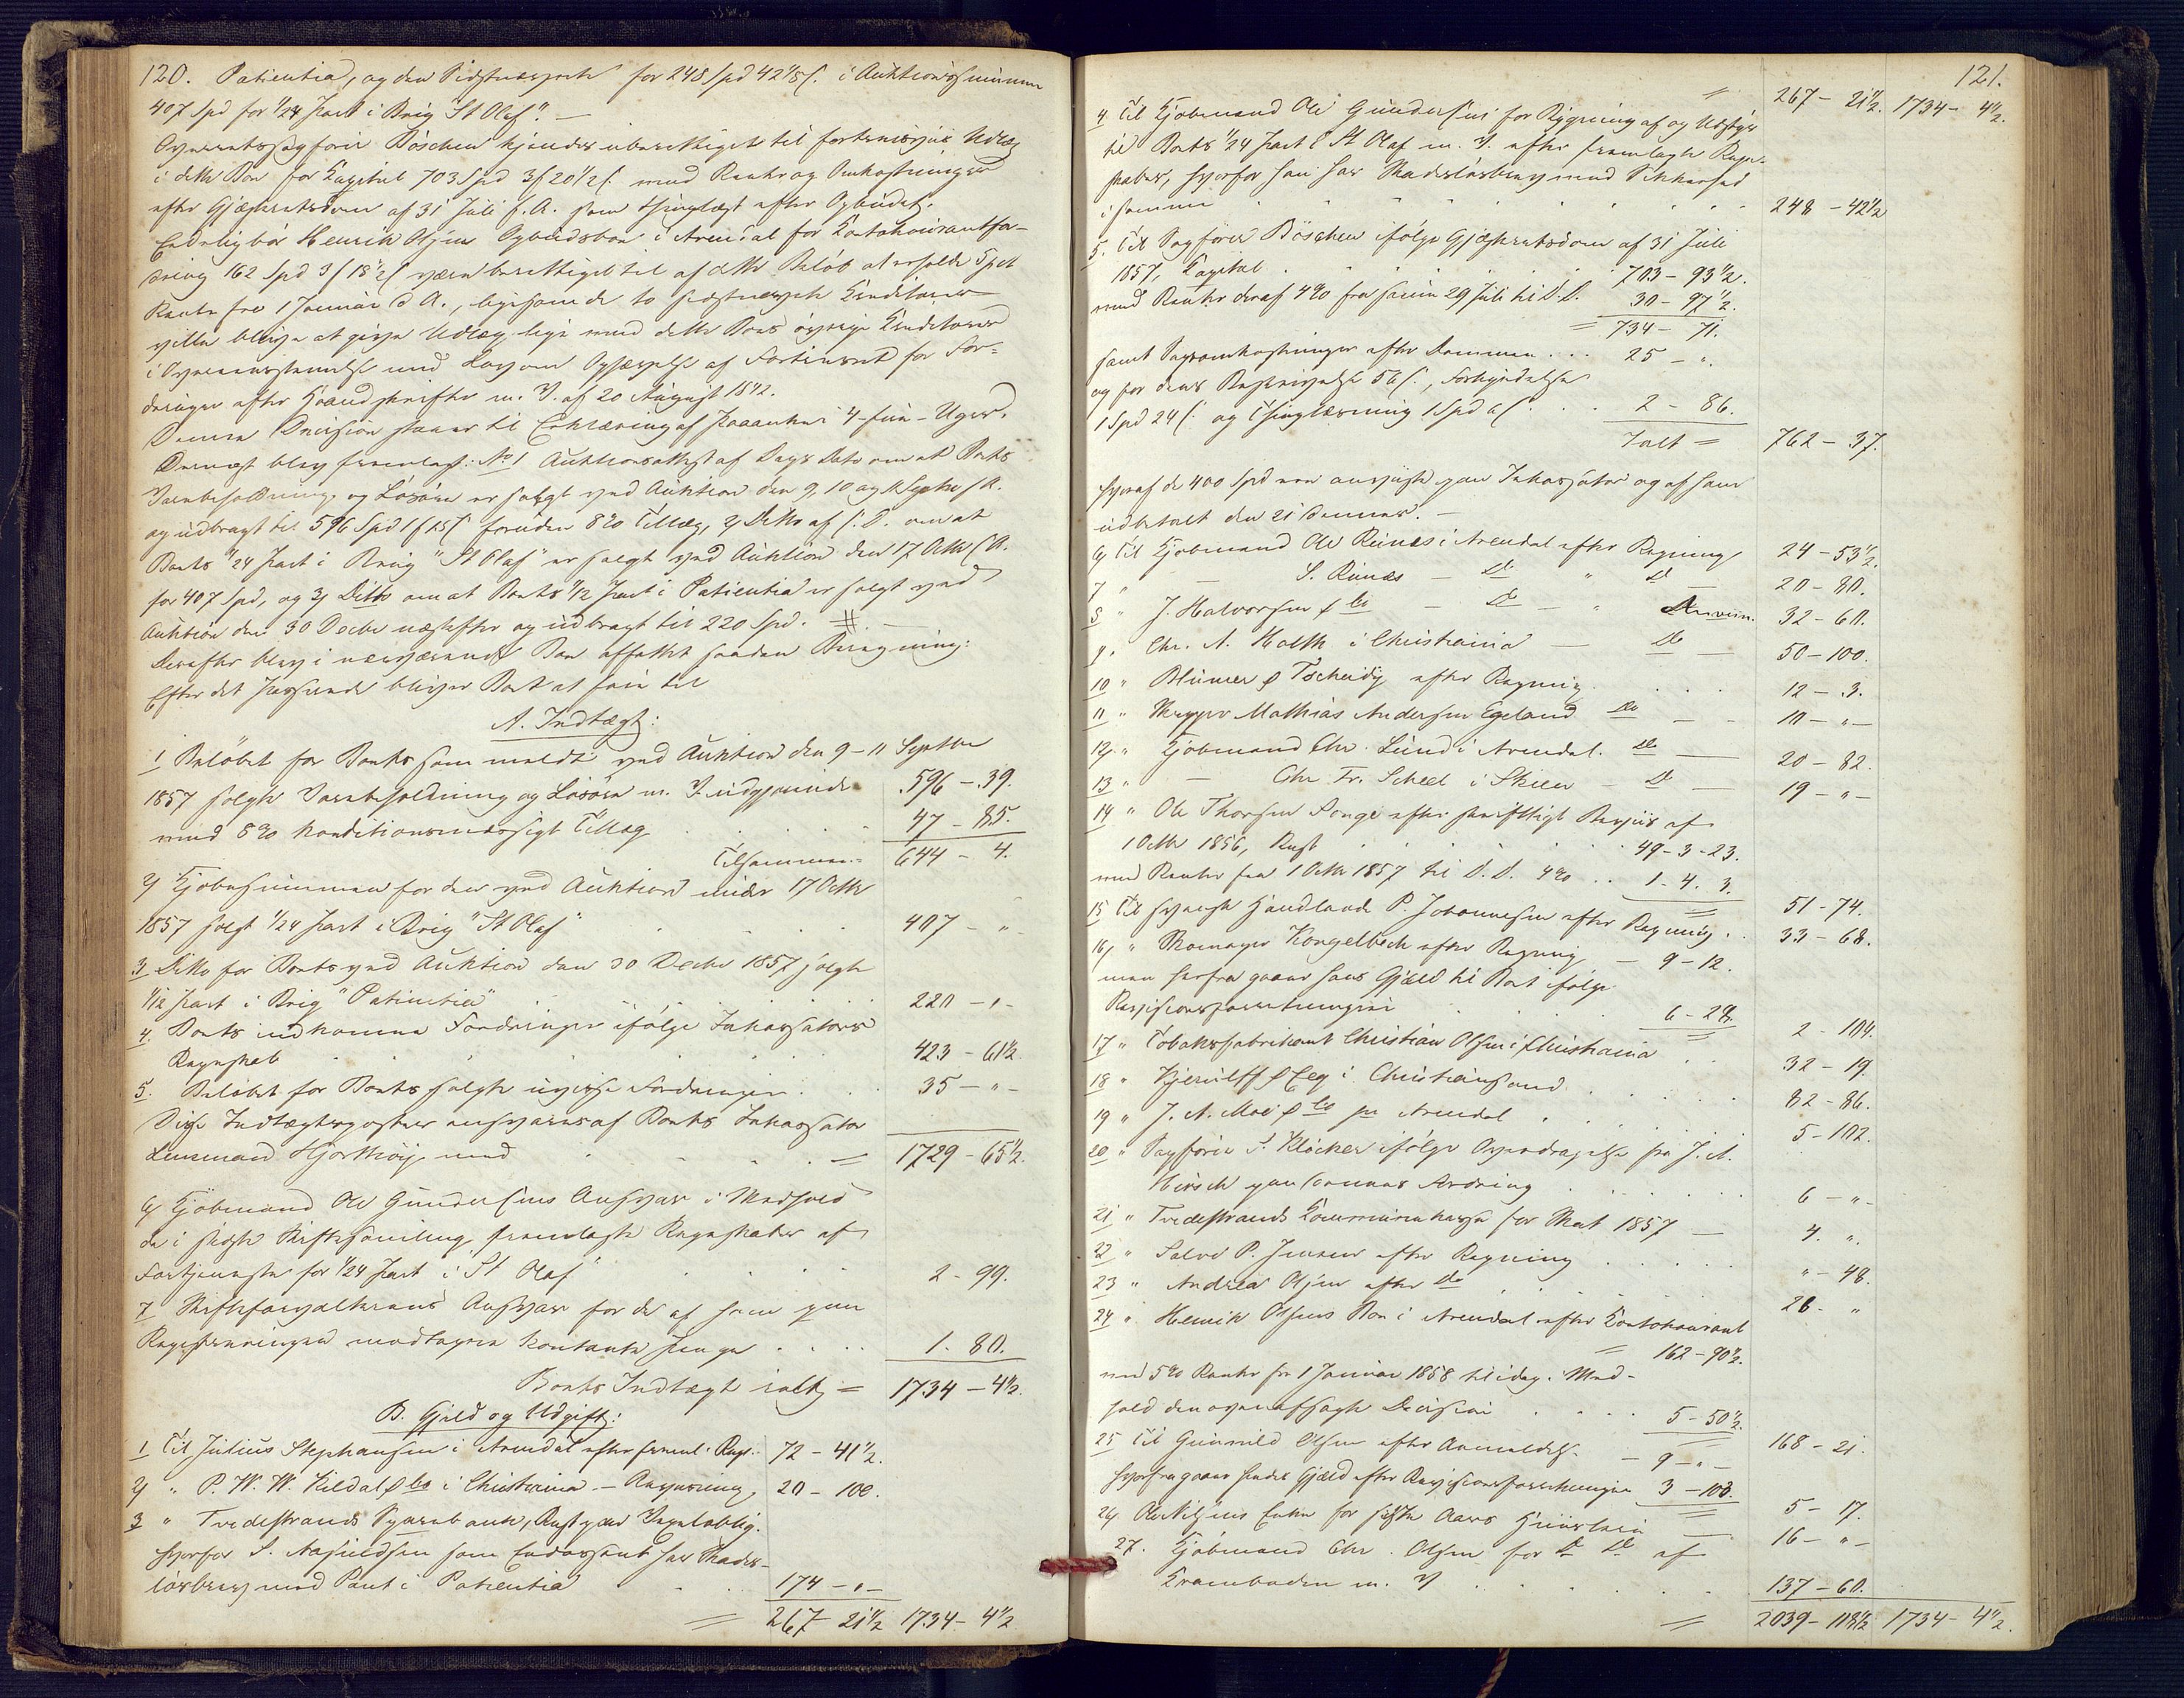 120. Patientia, og den Sidstnævnte for 248 Spd 42 1/8 s. i Auktionssummen
407 Spd for 1/24 Part i Brig "St Olaf". —
Overretssagfører Böschen kjendes uberettiget til fortrinsviis Udlæg
i dette Bo for Kapital 703 Spd 3 f 20 1/2 s. med Renter og Omkostninger
efter Gjæsteretsdom af 31 Juli f. A. som thinglæst efter Opbudet.
Endelig bør Henrik Olsens Opbudsbo i Arendal for Contokourantfor-
dring 162 Spd 3 f 18 1/2 s være berettiget til af dette Beløb at erholde 5 pCt
Rente fra 1 Januar d. A., ligesom de to sidstnævnte Kreditorer
ville blive at give Udlæg lige med dette Boes øvrige Kreditorer
i Overensstemmelse med Lov om Ophævelse af Fortrinsret for For-
dringer efter Haandskrifter m. V. af 20 August 1842.
Denne Decision staaer til Erklæring af Paaanke i 4-fire-Uger.
Dernæst blev fremlagt: No 1 Auktionsattest af Dags Dato om at Boets
Varebeholdning og Løsøre er solgt ved Auktion den 9, 10 og 11 Septbr f. A.
og udbragt til 596 Spd 1 f 15 s foruden 8% Tillæg, 2, Ditto af s. D. om at
Boets 1/24 Part i Brig "St Olaf" er solgt ved Auktion den 17 Octbr f. A.
for 407 Spd, og 3, Ditto om at Boets 1/12 Part i Patientia er solgt ved
Auktion den 30 Decbr næstefter og udbragt til 220 Spd. # —
Derefter blev i nærværende Bo affattet saadan Beregning:
Efter det Passerede bliver Boet at føre til
A. Indtægt:
1 Beløbet for Boets som meldt ved Auktion den 9-11 Septbr
1857 solgte Varebeholdning og Løsøre m. V. udgjørende 596 - 39.
med 8% konditionsmæssigt Tillæg . . . 47 - 85.
Tilsammen = 644 - 4.
2, Kjøbesummen for den ved Auktion under 17 Octbr
1857 solgt 1/24 Part i Brig "St Olaf" . . . 407 - " -
3 Ditto for Boets ved Auktion den 30 Decbr 1857 solgte
1/12 Part i Brig "Patientia" . . . 220 - " -
4. Boets indkomne Fordringer ifølge Inkassators
Regnskab . . . 423 - 61 1/2.
5. Beløbet for Boets solgte uvisse Fordringer . . 35 - " -
Disse Indtægtsposter ansvares af Boets Inkassator
Lensmand Hjorthøy med . . . = 1729 - 65 1/2.
6, Kjøbmand Ole Gundersens Ansvar i Medhold
de i sidste Skiftesamling fremlagte Regnskaber af
Fortjeneste for 1/24 Part i "St Olaf" . . . 2 - 99.
7 Skifteforvalterens Ansvar for de af ham ved
Registreringen modtagne kontante Penge . . . 1. 80.
Boets Indtægt ialt = 1734 - 4 1/2.
B. Gjæld og Udgift:
1 Til Julius Stephansen i Arendal efter freml. Regn. 72 - 41 1/2.
2, " P. W. W. Kildal & Co i Christiania - Regning, 20 - 100.
3 " Tvedestrands Sparebank, Rest paa Vexeloblig.
hvorfor S. Aasuldsen som Endossent har Skades-
løsbrev med Pant i Patientia . . . 174 - " -
= 267 21 1/2 1734 - 4 1/2
121.
= 267 - 21 1/2. 1734 - 4 1/2.
4 Til Kjøbmand Ole Gundersens for Bygning af og Udstyr
til Boets 1/24 Part i St Olaf m. V. efter fremlagte Regn-
skaber, hvorfor han har Skadesløsbrev med Sikkerhed
i samme . . . 248 - 42 1/2
5. Til Sagfører Böschen ifølge Gjæsteretsdom af 31 Juli
1857, Kapital . . . 703 - 93 1/2.
med Renter deraf 4% fra samme 29 Juli til D. D. 30 - 97 1/2.
= 734 - 71.
samt Sagsomkostninger efter Dommen . . . 25 - ".
og for dens Beskrivelse 56 s., Forkyndelse
1 Spd 24 s. og Thinglæsning 1 Spd 6 s. . . 2 - 86.
Ialt = 762 - 37.
hvoraf de 400 Spd ere anviiste paa Inkassator og af ham
udbetalt den 21 dennes. —
6, Til Kjøbmand Ole Rünes i Arendal efter Regning 24 - 53 1/2.
7 " — S. Rünes — Do " Do — 20 - 80.
8 " J. Halvorsen & Co — Do — " 32 - 60.
9 " Chr. A. Holth i Christiania — Do — 50 - 100.
10 " Blümer & Tscheidy efter Regning . . . 12 - 3.
11 " Skipper Mathias Andersen Egeland Do — — 10 - " -
12, " Kjøbmand Chr. Lund i Arendal. Do — 20 - 82.
13 " — Chr. Fr. Scheel i Skien — Do — 19 - " -
14 " Ole Thorsen Songe efter skriftligt Beviis af
1 Octbr 1856, Rest . . . 49 - 3 - 23.
med Renter fra 1 Octbr 1857 til D. D. 4% . . 1. 4. 3.
= 51 - 74.
15 Til Handlende P. Johannesen efter Regning . . 33 - 68.
16, " Skomager Kongelbech efter Regning — 9 - 12.
men herfra gaaer hans Gjæld til Boet ifølge
Registreringsforretningen . . . 6 - 28.
= 2 - 104.
17 " Tobaksfabrikant Christian Olsen i Christiania . . 32 - 19.
18 " Kjerulff & Eeg i Christiansand . . . 82 - 86.
19 " J. A. Moe & Co pr Arendal . . . 5 - 102.
20 " Sagfører S. Kløcker ifølge Overdragelse fra J. A.
Hirsch paa Ordning . . . 6 - " -
21 " Tvedestrands Kommunekasse for Skat 1857 — 4. ".
22 " Salve P. Jensen efter Regning . . . " - 48.
23 " Andrea Olsen efter Do . . . 26 - "
24 " Henrik Olsens Bo i Arendal efter Kontokourant
= 162 - 90 1/2.
med 5% Renter fra 1 Januar 1858 til idag i Med-
hold den ovenafsagte Decision . . . 5 - 50 1/2.
= 168 - 21.
25 Til Gunnild Olsen efter Anmeldelse — 9 - " -
hvorfra gaaer hendes Gjæld efter Registreringsforretningen 3 - 103.
= 5 - 17.
26, Ole Nilsens Enke for sidste Aars Huusleie — 16 - " -
27. Kjøbmand Chr. Olsen for Do Do af
Kramboden m. V . . . 137 - 60.
= 2039 - 118 1/2 1734 - 4 1/2.